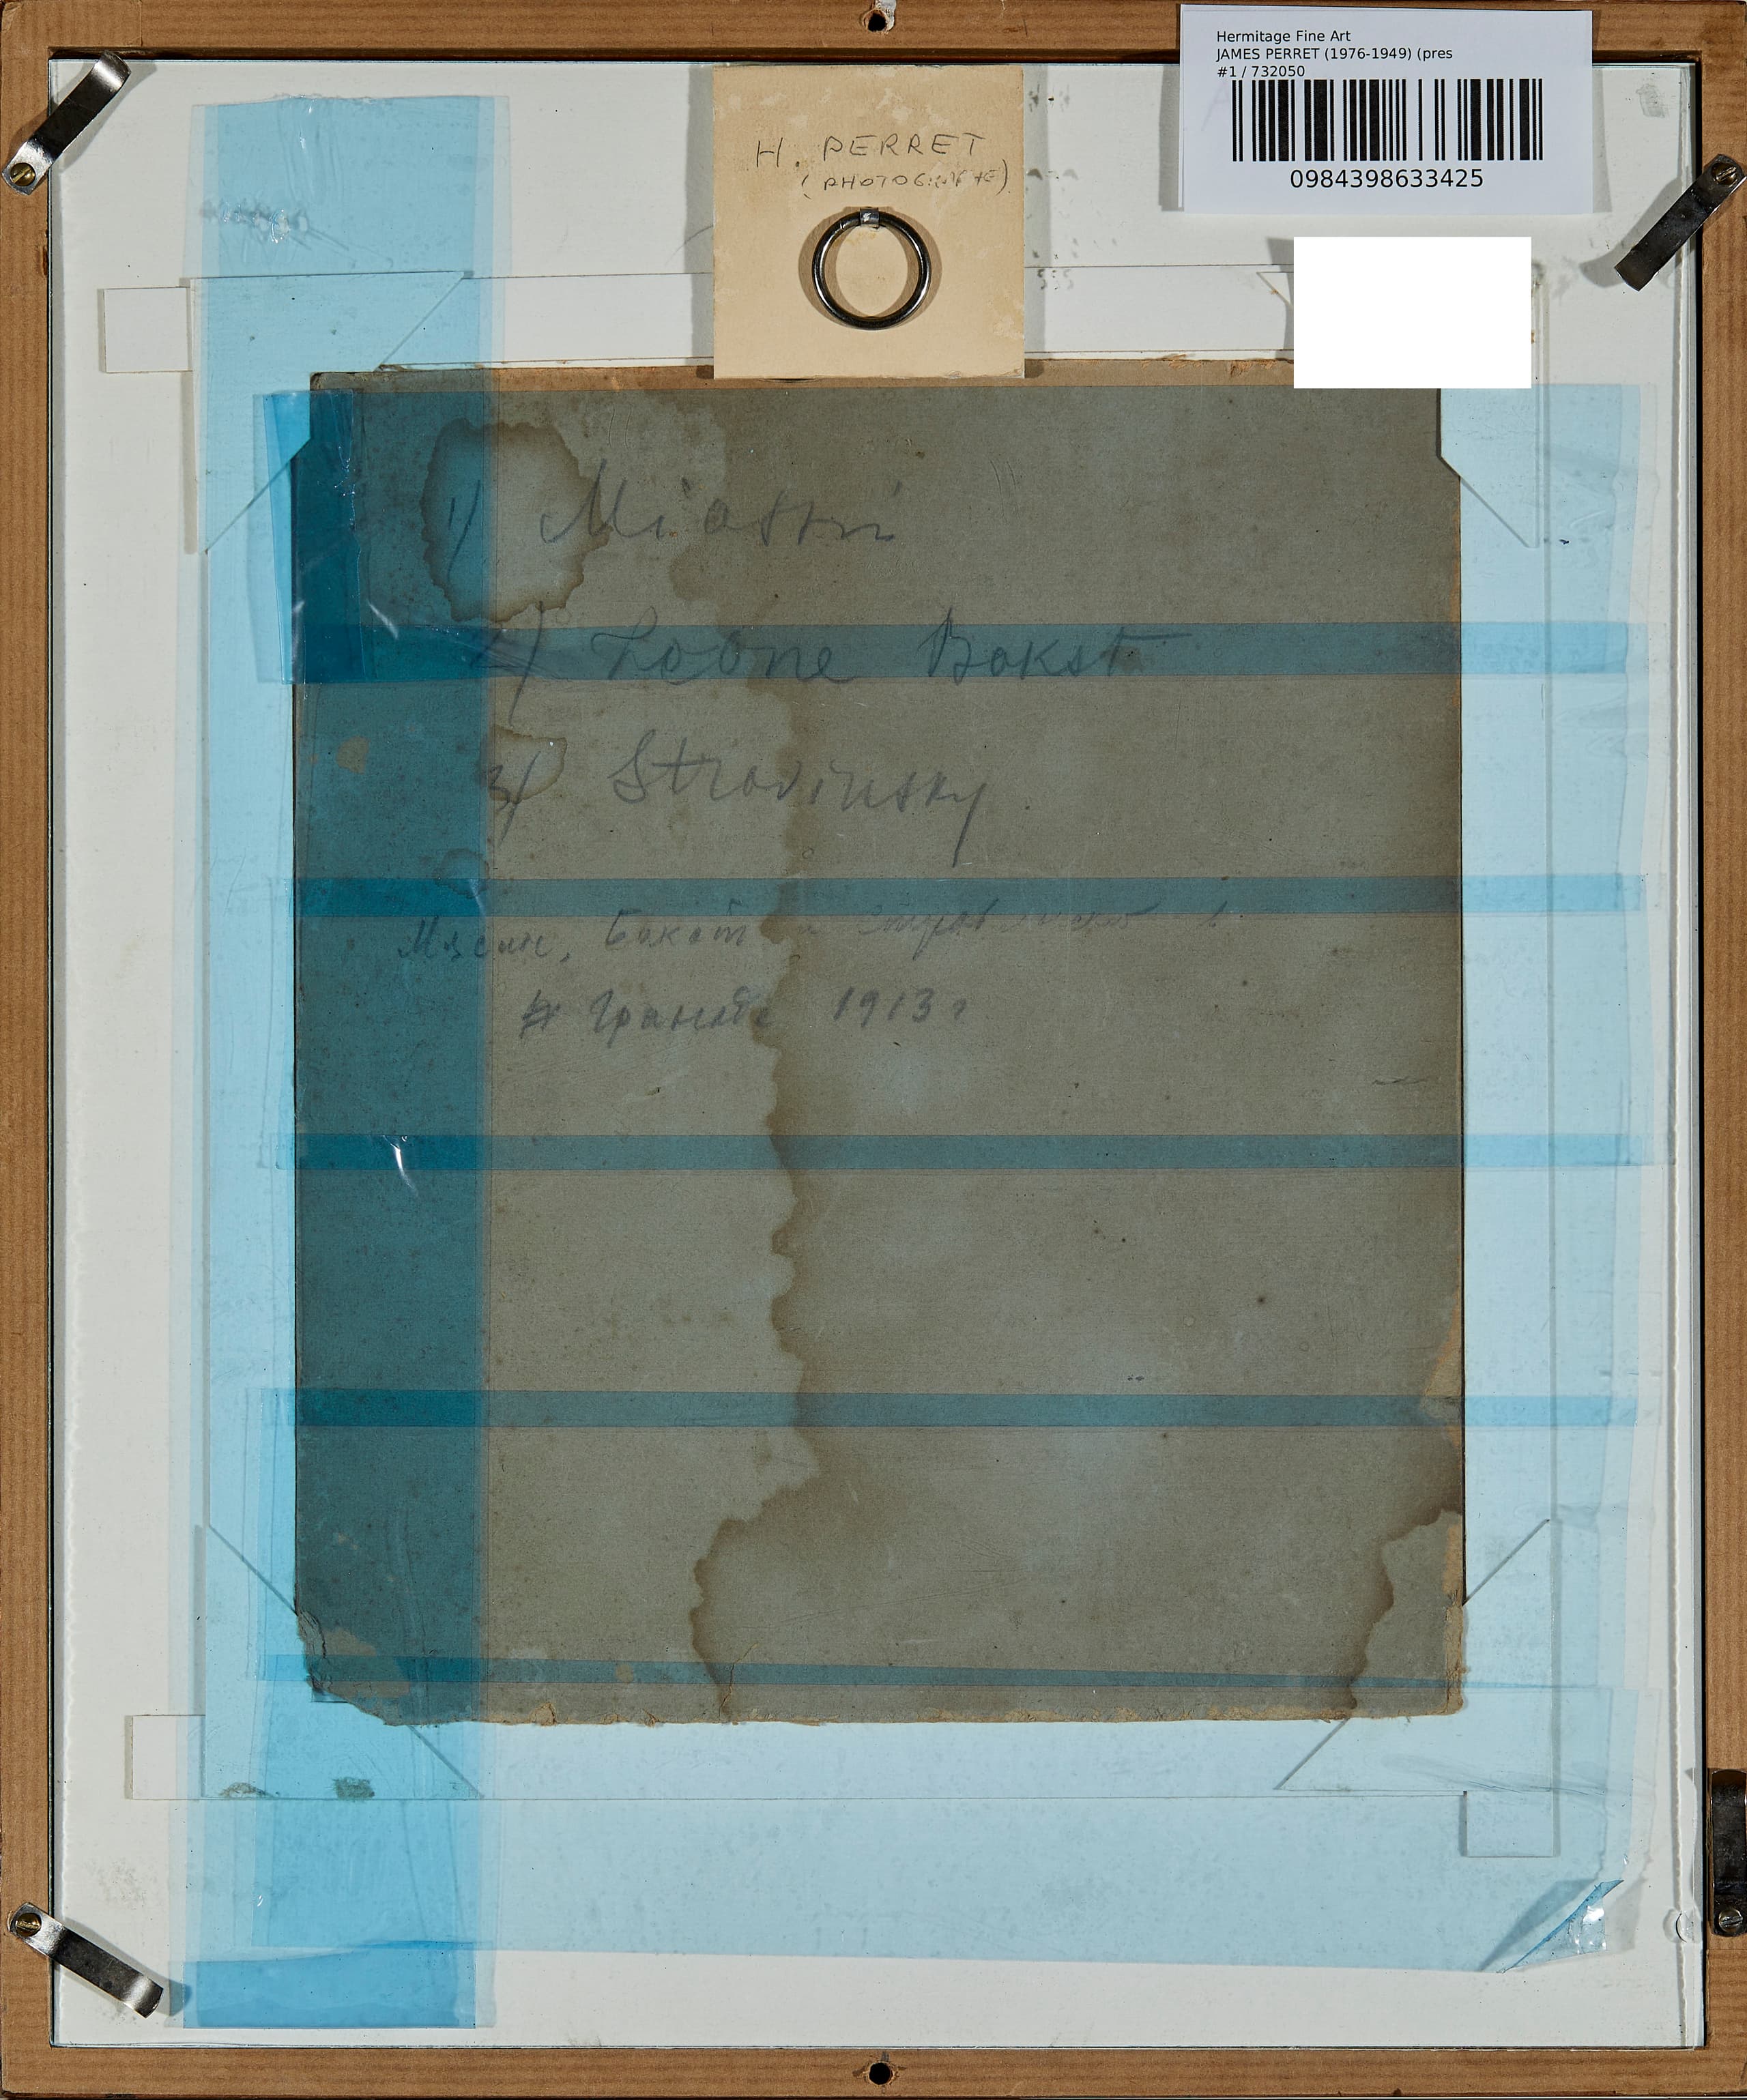 Hermitage Fine Art
JAMES PERRET (1976-1949) (pres
#1 / 732050
0984398633425
H. PERRET
(PHOTOGRAPHE)
1) Miassin
2) Léone Bakst
3) Stravinsky.
Мясин, Бакст и Стравинский в
Гранаде 1913 г